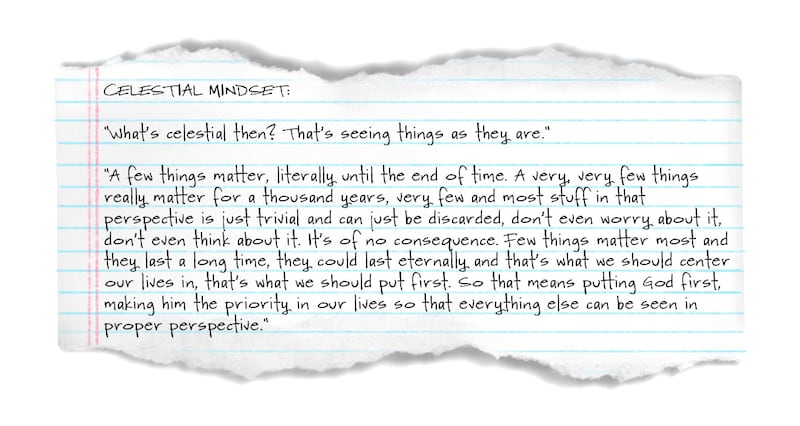 CELESTIAL MINDSET:
"What's celestial then? That's seeing things as they are."
"A few things matter, literally until the end of time. A very, very few things
really matter for a thousand years, very few and most stuff in that
perspective is just trivial and can just be discarded, don't even worry about it,
don't even think about it. It's of no consequence. Few things matter most and
they last a long time, they could last eternally and that's what we should center
our lives in, that's what we should put first. So that means putting God first,
making him the priority in our lives so that everything else can be seen in
proper perspective."